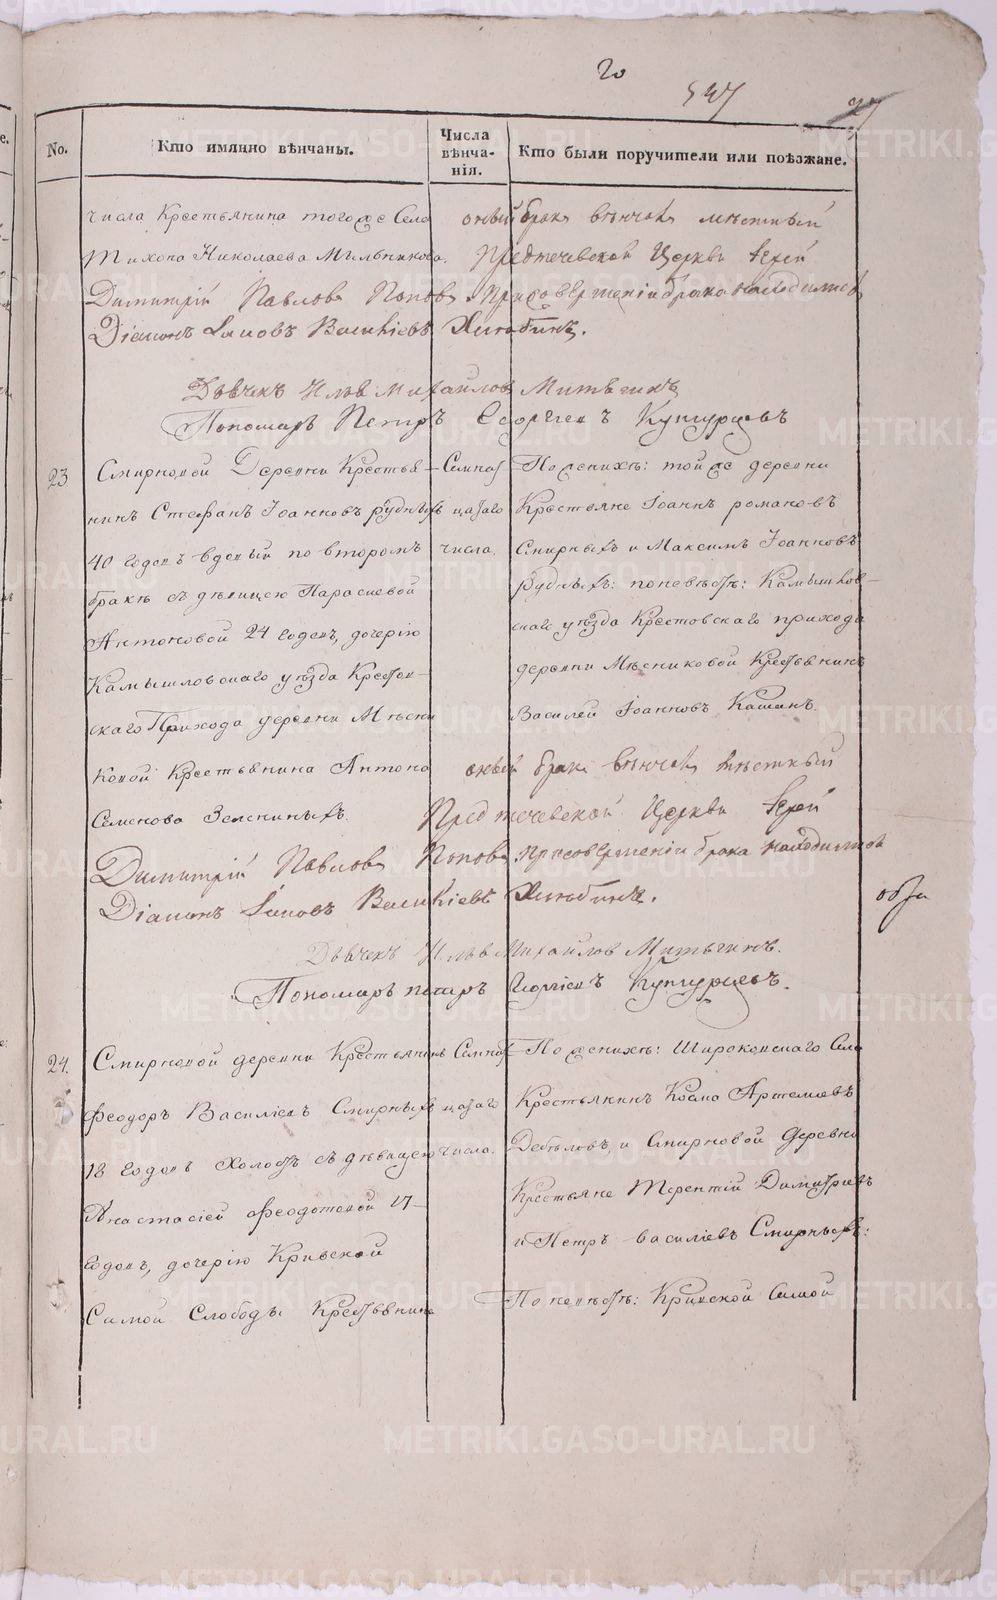 20
547
27
No.
Кто имянно вѣнчаны.
Числа вѣнча-нія.
Кто были поручители или поѣзжане.
числа Крестьянина тогоже Села
Тихона Николаева Мильникова.
оный бракъ вѣнчалъ мѣстный
Предтечевской Церкви Іерей
Димитрій Павловъ Поповъ. При совершеніи брака находились
Діаконъ Іаковъ Василіевъ
Дьячекъ Илья Михайловъ
Пономарь Петръ Георгіевъ
23.
Смирновой Деревни Крестья-
нинъ Стефанъ Іоанновъ Рудныхъ
40 годовъ вдовый по второмъ
бракѣ съ дѣвицею Параскевой
Антоновой 24 годовъ, дочерію
Камышловскаго уѣзда Крестов-
скаго Прихода деревни Мѣсни-
ковой Крестьянина Антона
Семенова Зелениныхъ.
Семнат-
цатаго
числа.
По женихѣ: той же деревни
Крестьяне Іоаннъ романовъ
Смирныхъ и Максимъ Іоанновъ
Рудныхъ: по невѣстѣ: Камышлов-
скаго уѣзда Крестовскаго прихода
деревни Мѣсниковой Крестьянинъ
Василей Іоанновъ Кашинъ.
оный бракъ вѣнчалъ мѣстный
Предтечевской Церкви Іерей
Димитрій Павловъ Поповъ, при совершеніи брака находились
Діаконъ Іаковъ Василіевъ
Дьячекъ Илья Михайловъ
Пономарь петръ Георгіевъ
24.
Смирновой деревни Крестьянинъ
Феодоръ Василіевъ Смирныхъ
18 годовъ Холостъ съ дѣвицею
Анастасіей Феодотовой 17-
годовъ, дочерію Кривской
Самой Слободы Крестьянина
Семнат-
цатаго
числа.
По женихѣ: Широковскаго Села
Крестьянинъ Косма Артемьевъ
Дебеловъ, и Смирновой Деревни
Крестьяне Терентій Димитріевъ
и Петръ Василіевъ Смирныхъ:
По невѣстѣ: Кривской Самой